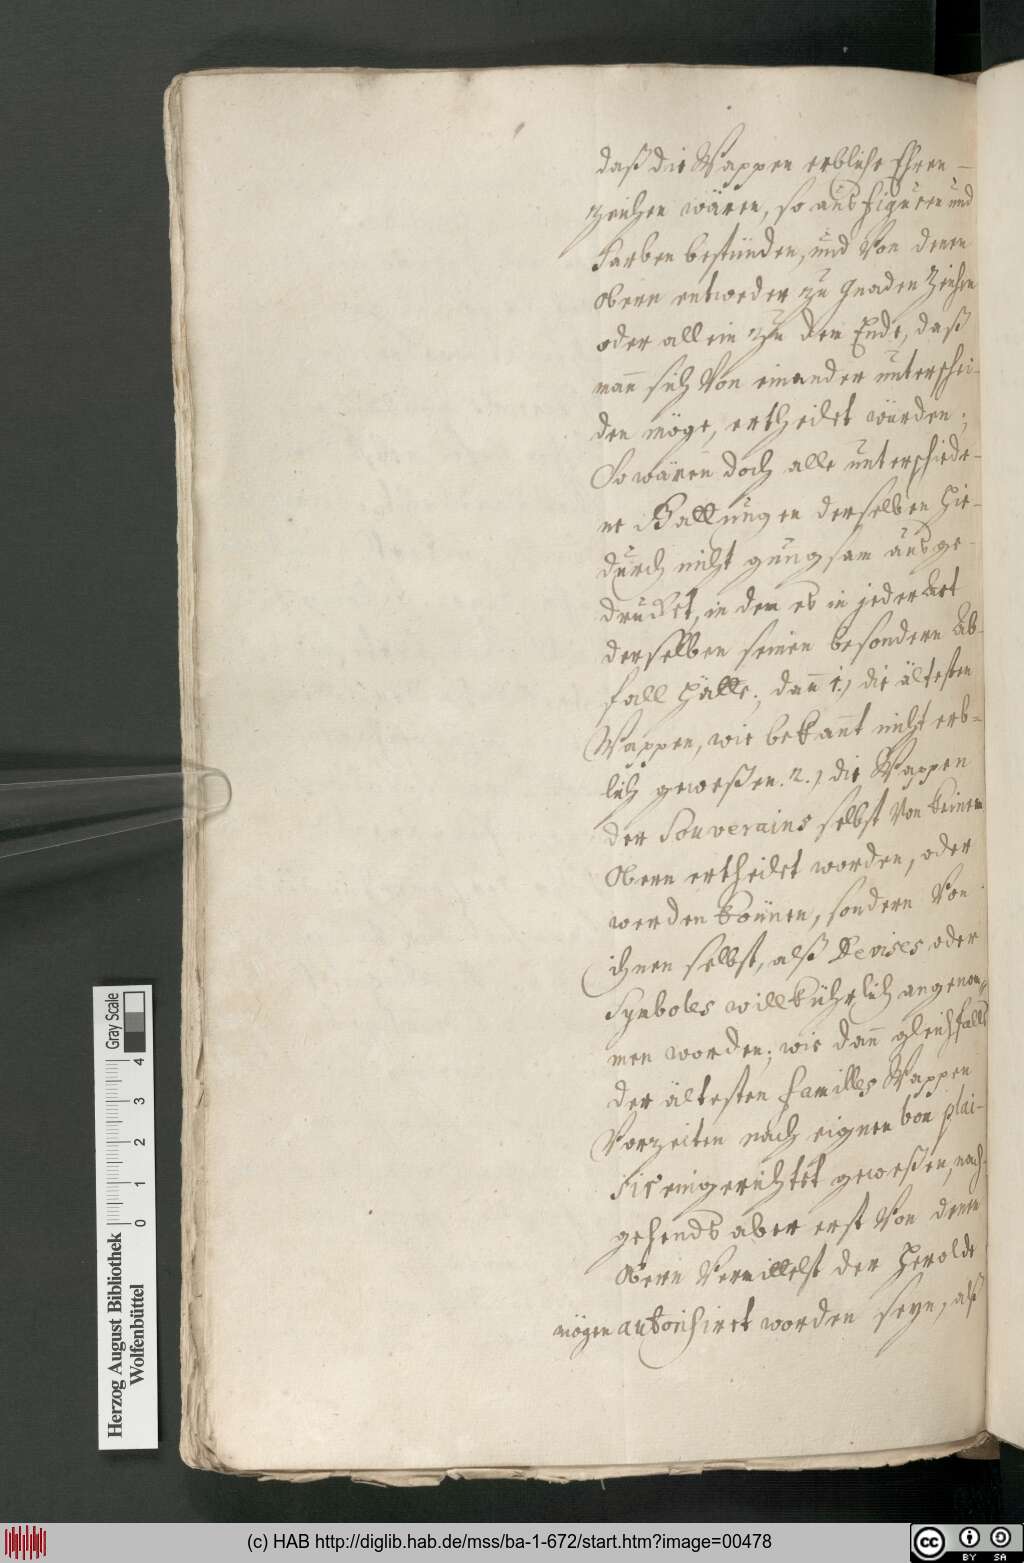 daß die Wappen erbliche Ehren-
zeichen wären, so aus figuren und
Farben bestünden, und Von denen
Obern entweder zu Gnaden Zeichen
oder allein zu dem Ende, daß
mañ sich Von einander unterschei-
den möge, ertheilet würden;
So wären doch alle unterschiede-
ne Gattungen derselben hie-
durch nicht gungsam ausge-
drucket, in dem es in jeder Art
derselben seinen besondern Ab-
fall hätte; dañ 1.) die ältesten
Wappen, wie bekañt nicht erb-
lich geweßen. 2.) die Wappen
der Souverains selbst Von keinem
Obern ertheilet worden, oder
werden köñen, sondern Von
ihnen selbst, alß Devises oder
Symboles willkührlich angenom-
men worden; wie dañ gleichfalls
der ältesten familles Wappen
Vorzeiten nach eignen bon plai-
sir eingerichtet geweßen, nach-
gehends aber erst Von denen
Obern Vermittelst der Herolde
mögen authorisiret worden seyn, alß
Herzog August Bibliothek
Wolfenbüttel
0 1 2 3 4
Gray Scale
(c) HAB http://diglib.hab.de/mss/ba-1-672/start.htm?image=00478
cc BY SA